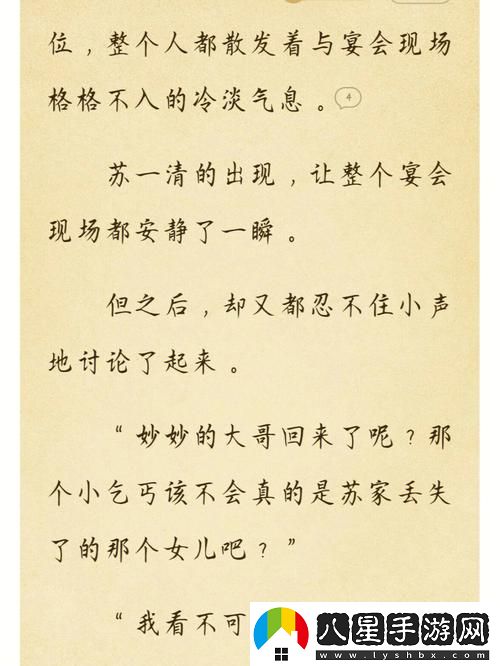 位，整个人都散发着与宴会现场
格格不入的冷淡气息。4
苏一清的出现，让整个宴会
现场都安静了一瞬。
但之后，却又都忍不住小声
地讨论了起来。
“妙妙的大哥回来了呢？那
个小乞丐该不会真的是苏家丢失
了的那个女儿吧？”
“我看不可
八星手游网
www.lyshbx.com